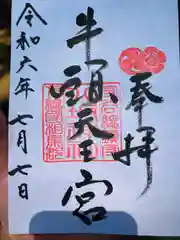 奉拝
牛頭天王宮
令和六年七月七日